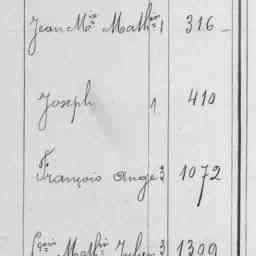 Jean M^ie Math^in 1 316
Joseph 1 410
François Ange 3 1072
F^çois Math^in Julien 3 1399